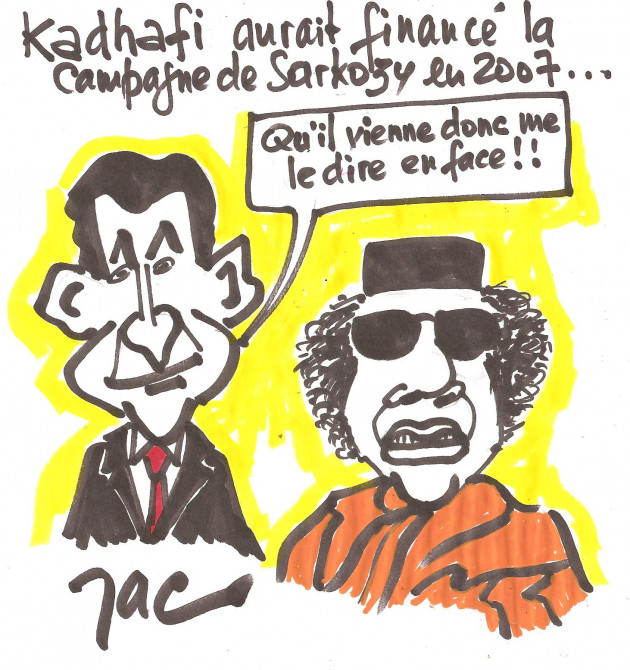 Kadhafi aurait financé la
campagne de Sarkozy en 2007...
Qu'il vienne donc me
le dire en face!!
Jac